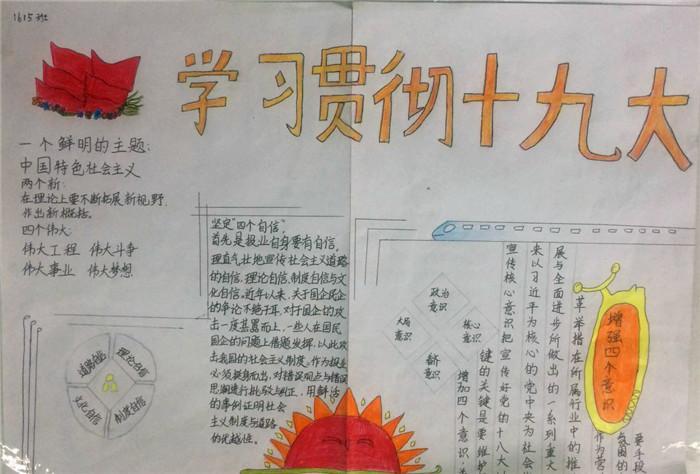 1615班
学习贯彻十九大
一个鲜明的主题:
中国特色社会主义
两个新:
在理论上要不断拓展新视野,
作出新概括。
四个伟大:
伟大工程 伟大斗争
伟大事业 伟大梦想
道路自信
理论自信
文化自信
制度自信
坚定"四个自信"。
首先是报业自身要有自信。
理直气壮地宣传社会主义道路
的自信,理论自信、制度自信与文
化自信。近年以来,关于国企民企
的争论不绝于耳,对于国企的攻
击一度甚嚣而上,一些人在国民
国企的问题上借题发挥,以此攻
击我国的社会主义制度。作为报业
必须挺身而出,对错误观点与错误
思潮进行批驳与纠正,用鲜活
的事例证明社会
主义制度与道路
的优越性。
政治意识
大局意识
核心意识
看齐意识
增强四个意识
要手段
氛围的
作为营
革举措在所属行业中的推
展与全面进步所做出的一系列重大
来以习近平为核心的党中央为社会
宣传核心意识把宣传好党的十八大
键的关键是要维护
增加四个意识关